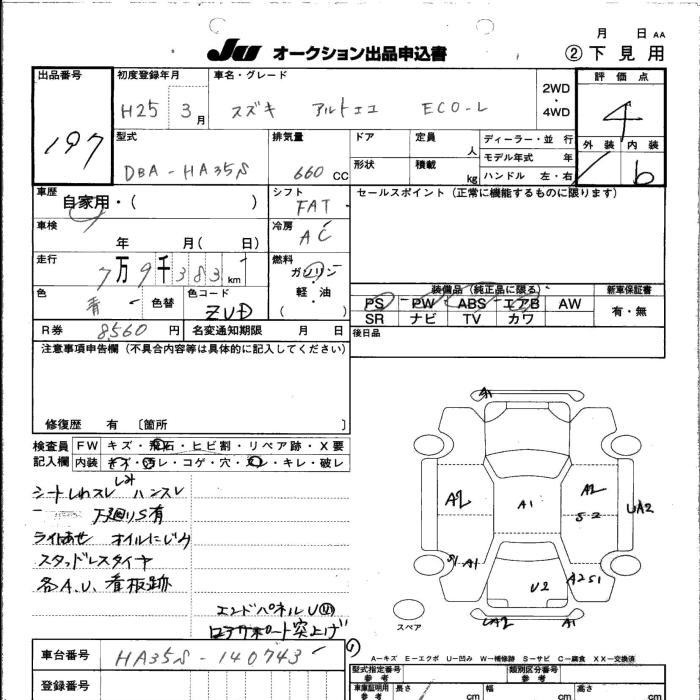 月 日 AA
JU オークション出品申込書 ②下見用
出品番号 197
初度登録年月 H25 3月
車名・グレード スズキ アルトエコ ECO-L
2WD・4WD
評価点 4
外装 内装 b
型式 DBA-HA35S
排気量 660 CC
ドア 定員 人
形状 積載 kg
ディーラー・並行
モデル年式 年
ハンドル 左・右
車歴 自家用・( )
シフト FAT
セールスポイント (正常に機能するものに限ります)
車検 年 月( 日)
冷房 AC
走行 7万9千383km
燃料 ガソリン・軽油( )
色 青 色替 色コード ZUD
装備品 (純正品に限る) 新車保証書
PS PW ABS エアB AW 有・無
SR ナビ TV カワ
R券 8560円 名変通知期限 月 日
後日品
注意事項申告欄 (不具合内容等は具体的に記入してください)
修復歴 有 〔箇所 〕
検査員記入欄
FW キズ・飛石・ヒビ割・リペア跡・X要
内装 キズ・汚レ・コゲ・穴・スレ・キレ・破レ
しみ
シートしわスレ ハンスレ
万廻りS有
ライトあせ オイルにじみ
スタッドレスタイヤ
各A.U. 看板跡
エンドパネルU
ロアサポート突上げ
A1
A2 A1 A2
S-2 UA2
S1 A1 U2 A2S1
UA2 A1
スペア
A-キズ E-エクボ U-凹み W-補修跡 S-サビ C-腐食 XX-交換済
車台番号 HA35S-140743
型式指定番号 参考 類別区分番号 参考
登録番号
車庫証明用 参考 長さ cm 幅 cm 高さ cm